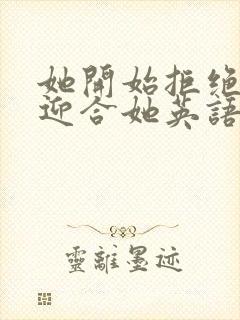 她開始拒绝
迎合她英語
靈離墨迹